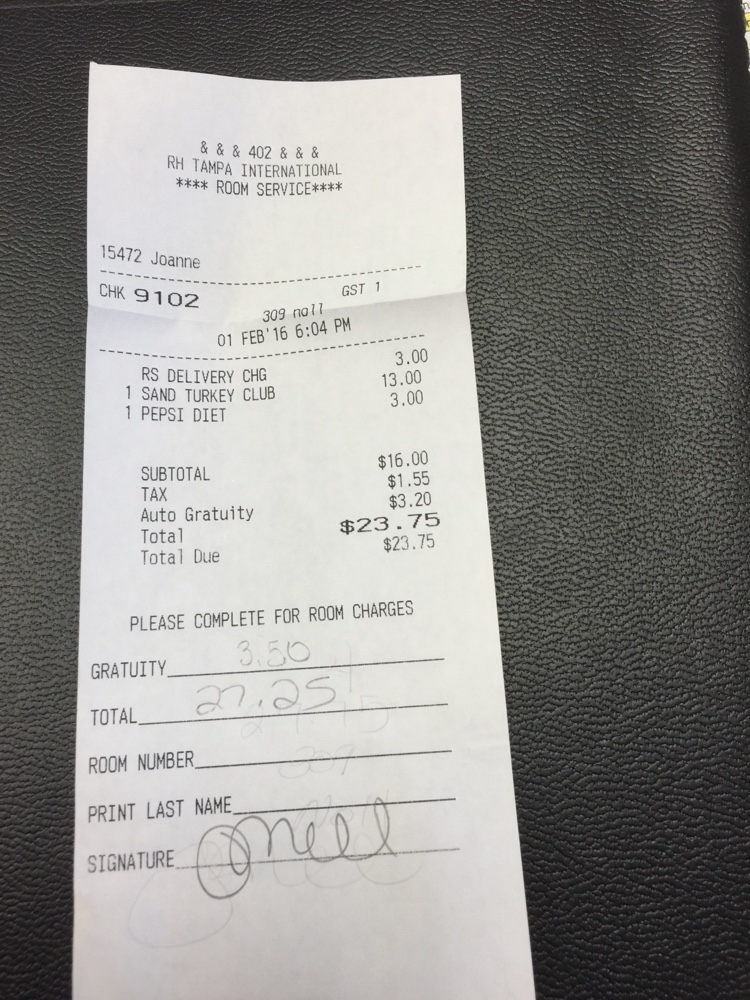 & & & 402 & & &
RH TAMPA INTERNATIONAL
**** ROOM SERVICE****
15472 Joanne
CHK 9102 GST 1
309 nall
01 FEB'16 6:04 PM
RS DELIVERY CHG 3.00
1 SAND TURKEY CLUB 13.00
1 PEPSI DIET 3.00
SUBTOTAL $16.00
TAX $1.55
Auto Gratuity $3.20
Total $23.75
Total Due $23.75
PLEASE COMPLETE FOR ROOM CHARGES
GRATUITY 3.50
TOTAL 27.25
ROOM NUMBER 309
PRINT LAST NAME
SIGNATURE